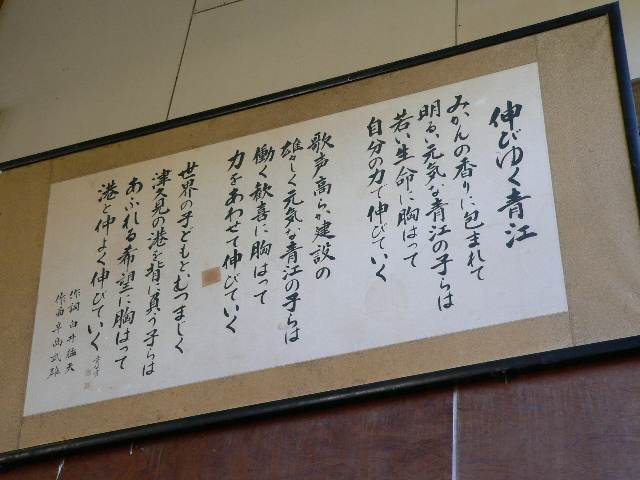 伸びゆく青江
みかんの香りに包まれて
明るく元気な青江の子らは
若い生命に胸はって
自分の力で伸びていく
歌声高らか建設の
雄々しく元気な青江の子らは
働く歓喜に胸はって
力をあわせて伸びていく
世界の子どもとむつまじく
津久見の港を背に負う子らは
あふれる希望に胸はって
港と仲よく伸びていく
作詞 臼井猛夫
作曲 武雄